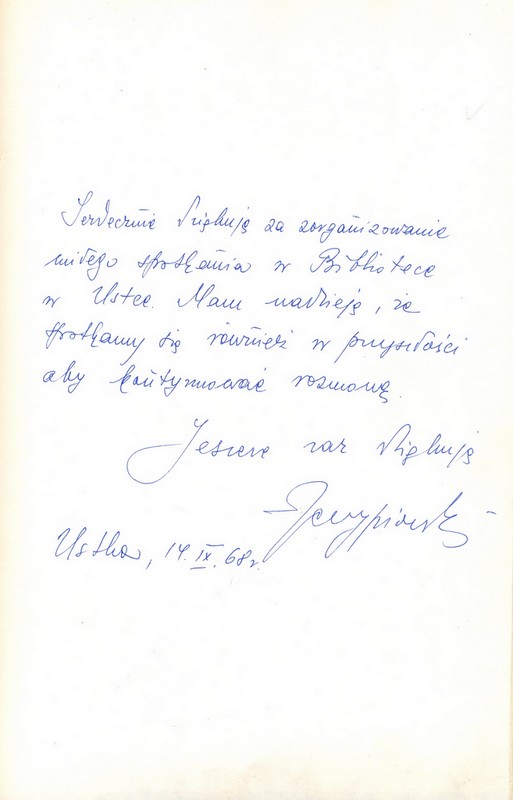 Serdecznie dziękuję za zorganizowanie
miłego spotkania w Bibliotece
w Ustce. Mam nadzieję, że
spotkamy się również w przyszłości
aby kontynuować rozmowę.
Jeszcze raz dziękuję
Ustka, 14. IX. 68 r.